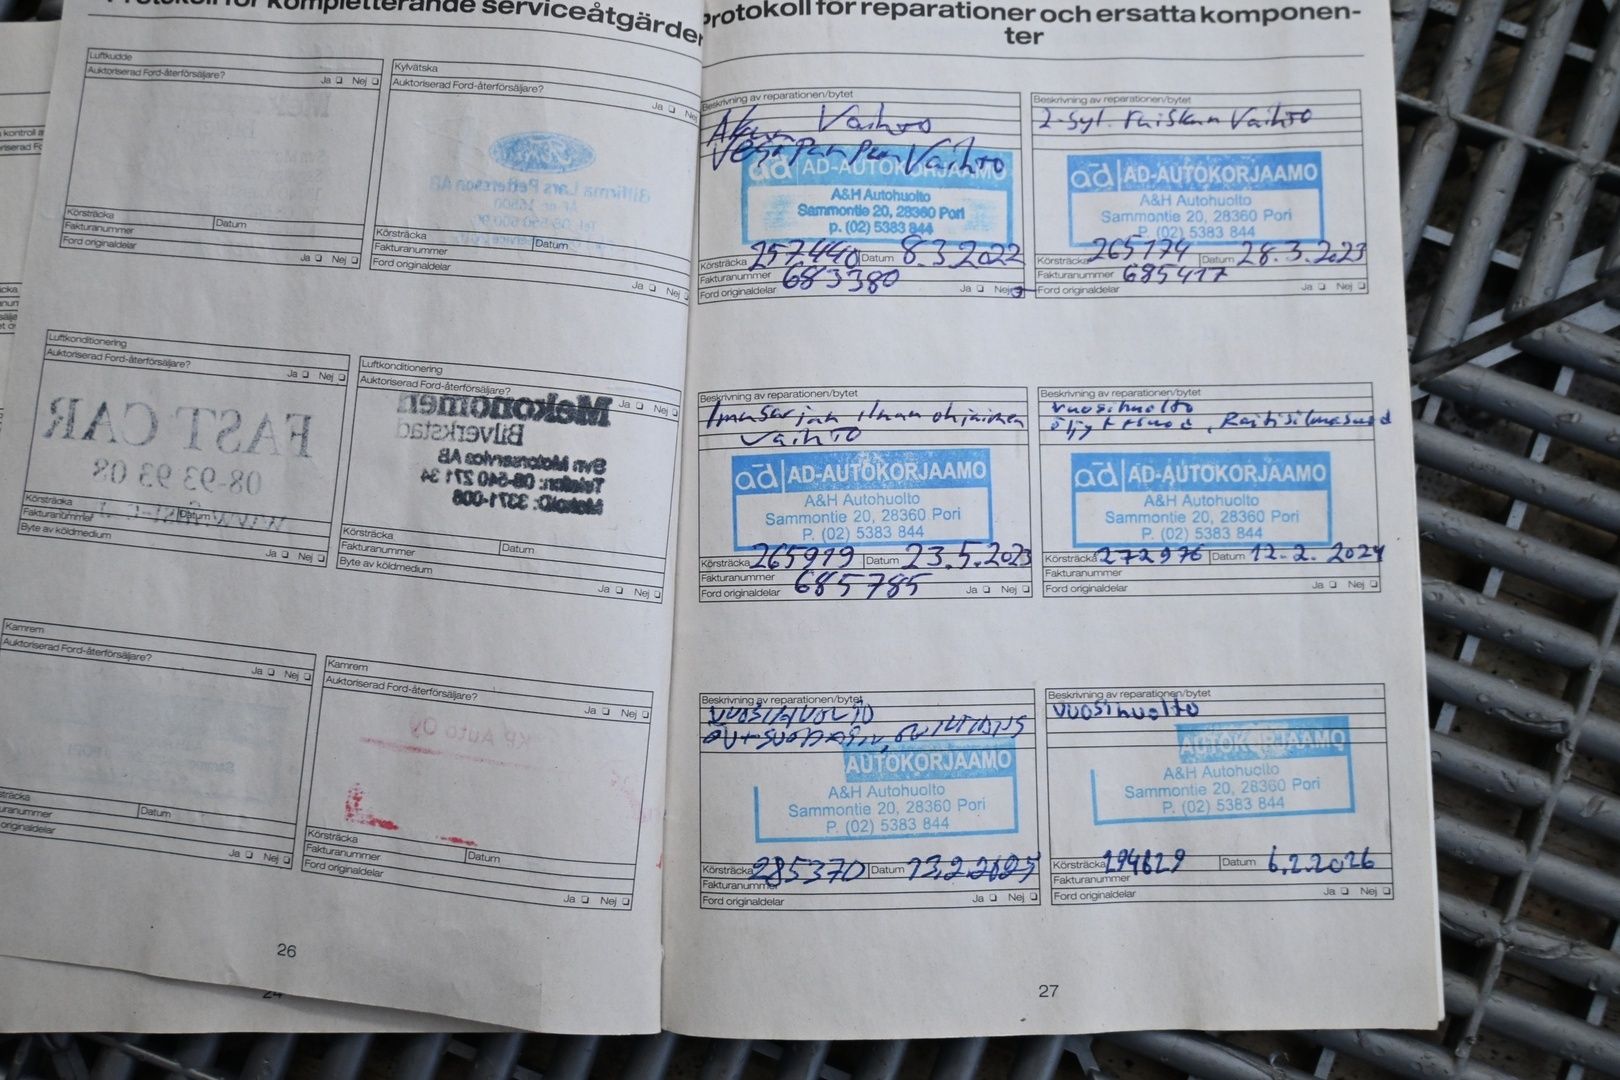 Protokoll för kompletterande serviceåtgärder
Luftkudde
Auktoriserad Ford-återförsäljare?
Ja ❏ Nej ❏
Körsträcka
Datum
Fakturanummer
Ford originaldelar
Ja ❏ Nej ❏
Kylvätska
Auktoriserad Ford-återförsäljare?
Ja ❏ Nej
Körsträcka
Datum
Fakturanummer
Ford originaldelar
Ja ❏ Nej ❏
Luftkonditionering
Auktoriserad Ford-återförsäljare?
Ja ❏ Nej ❏
FAST CAR
08-93 93 08
Körsträcka
Fakturanummer
Datum
Byte av köldmedium
Ja ❏ Nej ❏
Luftkonditionering
Auktoriserad Ford-återförsäljare?
Ja ❏ Nej ❏
Mekonomen
Bilverkstad
Svn Motorservice AB
Telefon: 08-540 271 34
MekoID: 3371-008
Körsträcka
Fakturanummer
Datum
Byte av köldmedium
Ja ❏ Nej ❏
Kamrem
Auktoriserad Ford-återförsäljare?
Ja ❏ Nej ❏
Datum
Ja ❏ Nej ❏
Kamrem
Auktoriserad Ford-återförsäljare?
Ja ❏ Nej ❏
KP Auto Oy
Körsträcka
Fakturanummer
Datum
Ford originaldelar
Ja ❏ Nej ❏
26
24
Protokoll för reparationer och ersatta komponen-
ter
Beskrivning av reparationen/bytet
Akun Vaihto
Vesipumpun Vaihto
ad AD-AUTOKORJAAMO
A&H Autohuolto
Sammontie 20, 28360 Pori
p. (02) 5383 844
Körsträcka 257440 Datum 8.3.2022
Fakturanummer 683380
Ford originaldelar Ja ❏ Nej ❏
Beskrivning av reparationen/bytet
2-syl. Ruiskun Vaihto
ad AD-AUTOKORJAAMO
A&H Autohuolto
Sammontie 20, 28360 Pori
P. (02) 5383 844
Körsträcka 265174 Datum 28.3.2023
Fakturanummer 685417
Ford originaldelar Ja ❏ Nej ❏
Beskrivning av reparationen/bytet
Imusarjan ilman ohjaimen
Vaihto
ad AD-AUTOKORJAAMO
A&H Autohuolto
Sammontie 20, 28360 Pori
P. (02) 5383 844
Körsträcka 265919 Datum 23.5.2023
Fakturanummer 685785
Ford originaldelar Ja ❏ Nej ❏
Beskrivning av reparationen/bytet
vuosihuolto
öljy + suod, Raitisilmasuod
ad AD-AUTOKORJAAMO
A&H Autohuolto
Sammontie 20, 28360 Pori
P. (02) 5383 844
Körsträcka 272976 Datum 12.2.2024
Fakturanummer
Ford originaldelar Ja ❏ Nej ❏
Beskrivning av reparationen/bytet
VUOSIHUOLTO
AUTOKORJAAMO
A&H Autohuolto
Sammontie 20, 28360 Pori
P. (02) 5383 844
Körsträcka 285370 Datum 13.2.2025
Fakturanummer
Ford originaldelar Ja ❏ Nej ❏
Beskrivning av reparationen/bytet
vuosihuolto
AUTOKORJAAMO
A&H Autohuolto
Sammontie 20, 28360 Pori
P. (02) 5383 844
Körsträcka 294629 Datum 6.2.2026
Fakturanummer
Ford originaldelar Ja ❏ Nej ❏
27